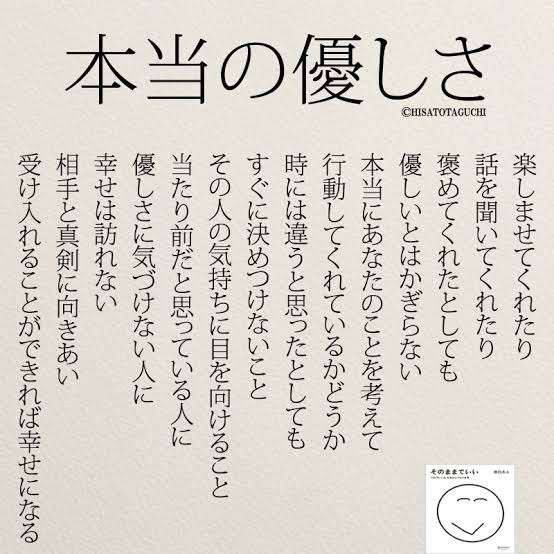 本当の優しさ
©HISATOTAGUCHI
楽しませてくれたり
話を聞いてくれたり
褒めてくれたとしても
優しいとはかぎらない
本当にあなたのことを考えて
行動してくれているかどうか
時には違うと思ったとしても
すぐに決めつけないこと
その人の気持ちに目を向けること
当たり前だと思っている人に
優しさに気づけない人に
幸せは訪れない
相手と真剣に向きあい
受け入れることができれば幸せになる
そのままでいい